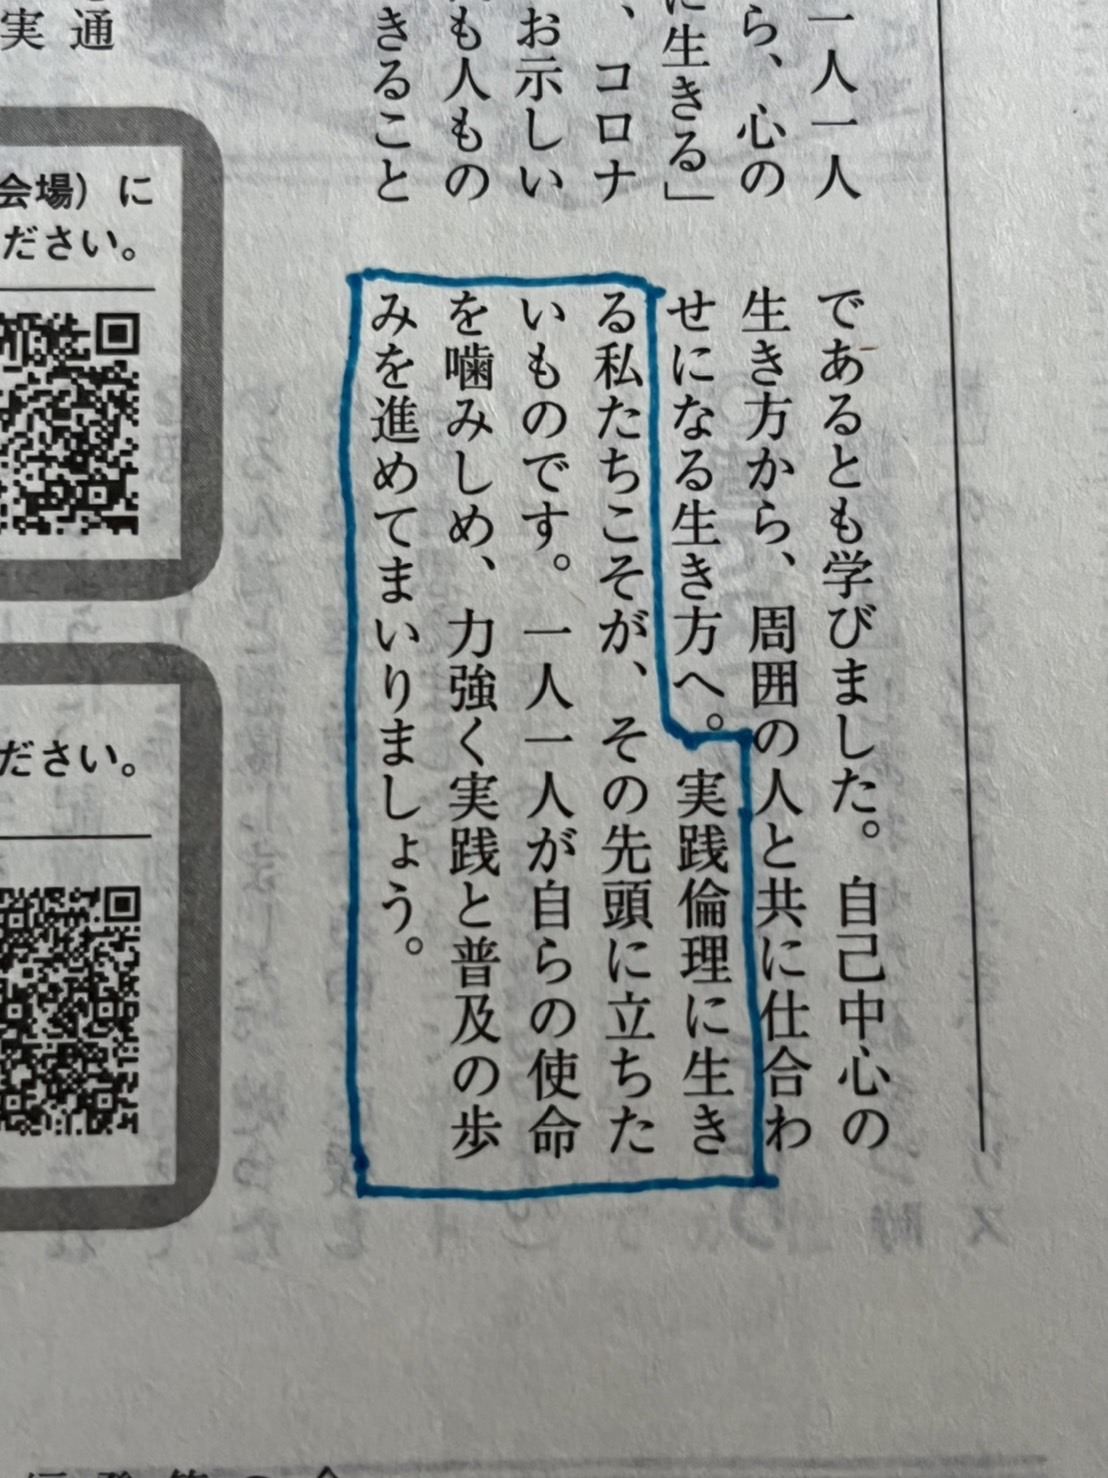 一人一人
ら、心の
に生きる」
、コロナ
お示しい
も人もの
きること
であるとも学びました。自己中心の
生き方から、周囲の人と共に仕合わ
せになる生き方へ。実践倫理に生き
る私たちこそが、その先頭に立ちた
いものです。一人一人が自らの使命
を噛みしめ、力強く実践と普及の歩
みを進めてまいりましょう。
通
実
会場）に
ださい。
ださい。